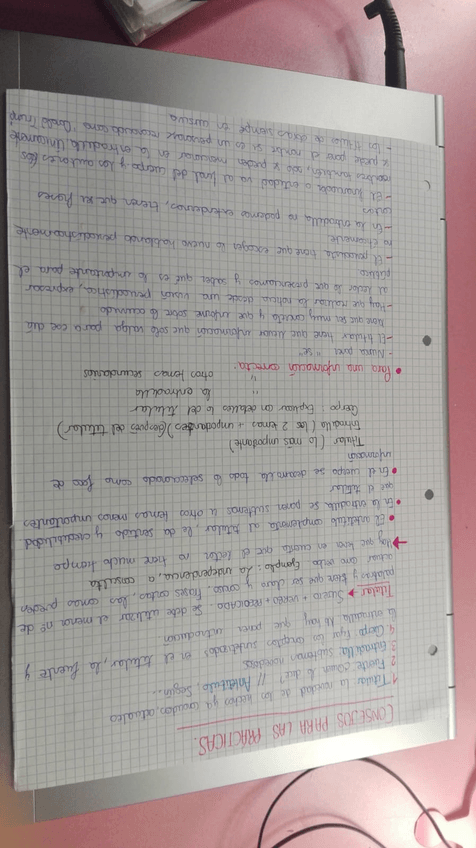 CONSEJOS PARA LAS PRÁCTICAS.
1 Titular la novedad de los hechos ya conocidos, actuales
2 Fuente ¿Quién lo dice? // Antetítulo → Según...
3 Entradilla subtemas novedosos
4 Cuerpo fijar los conceptos subrallados en el titular, la fuente y
la entradilla. No hay que poner introducción
Titular → Sujeto + VERBO + PREDICADO. Se debe utilizar el menor nº de
palabras y tiene que ser claro y conciso, frases cortas, las comas pueden
actuar como verbo Ejemplo: La independencia, a consulta
Hay que tener en cuenta que el lector no tiene mucho tiempo
• El antetítulo complementa al titular, le da sentido y credibilidad
• En la entradilla se ponen subtemas u otros temas menos importantes
que el titular
• En el cuerpo se desarrolla todo lo seleccionado como foco de
información
Titular (lo más importante)
Entradilla (los 2 temas + importantes) (después del titular)
Cuerpo: Explicar con detalles lo del titular
" la entradilla
" otros temas secundarios
• Para una información correcta:
- Nunca poner "se"
- El titular tiene que llevar información que solo valga para ese día
tiene que ser muy concreto y que informe sobre lo ocurrido
- Hay que realizar la noticia desde una visión periodística, expresar
al lector lo que presenciamos y saber qué es lo importante para el
público
- El periodista tiene que escoger lo nuevo hablando periodísticamente
no literalmente.
- En la entradilla no podemos extendernos, tienen que ser frases
cortas
- El financiado o entidad va al final del cuerpo y los autores (los
nombres también, solo se pueden mencionar en la entradilla. Únicamente
se puede poner el nombre si es un personaje reconocido como
- Los títulos de obras siempre en cursiva